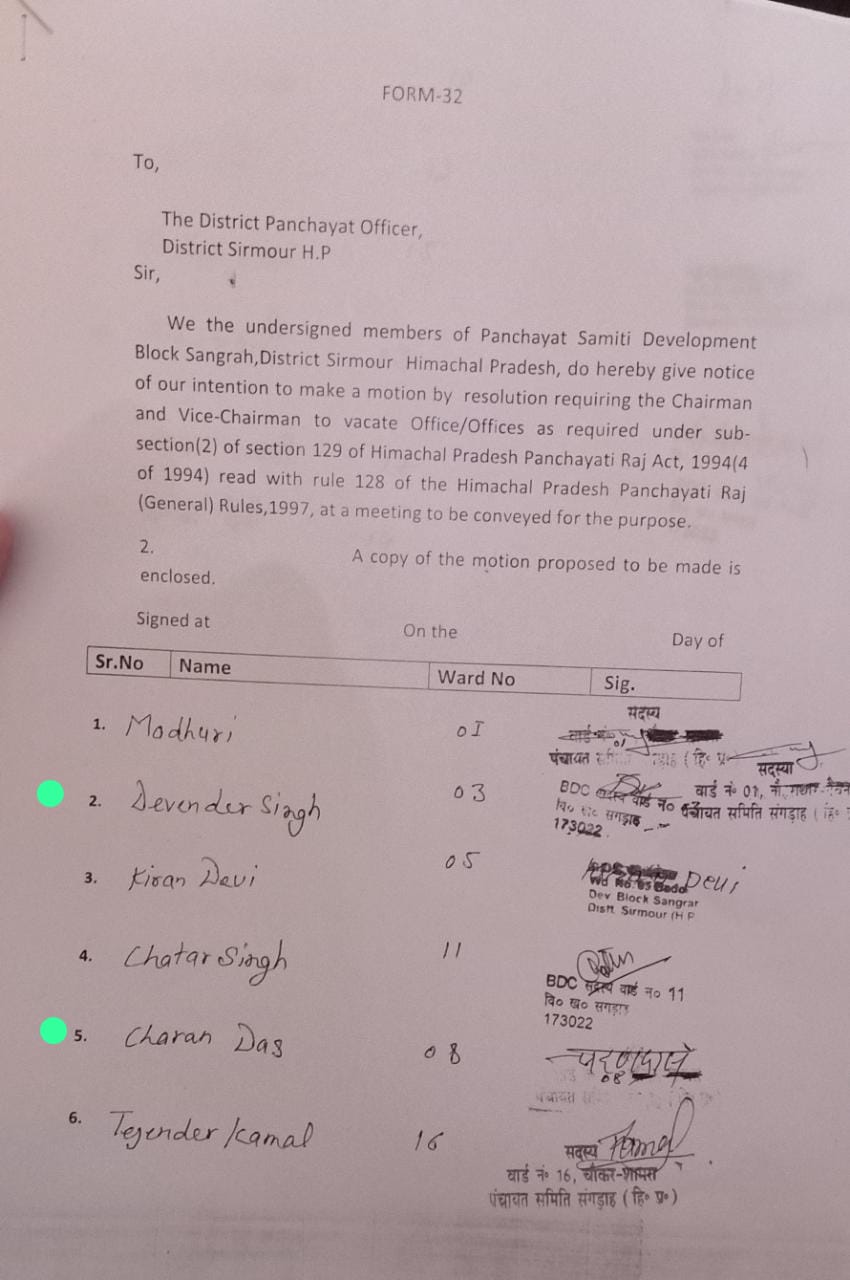 FORM-32
To,
The District Panchayat Officer,
District Sirmour H.P
Sir,
We the undersigned members of Panchayat Samiti Development
Block Sangrah,District Sirmour Himachal Pradesh, do hereby give notice
of our intention to make a motion by resolution requiring the Chairman
and Vice-Chairman to vacate Office/Offices as required under sub-
section(2) of section 129 of Himachal Pradesh Panchayati Raj Act, 1994(4
of 1994) read with rule 128 of the Himachal Pradesh Panchayati Raj
(General) Rules,1997, at a meeting to be conveyed for the purpose.
2. A copy of the motion proposed to be made is
enclosed.
Signed at On the Day of
Sr.No Name Ward No Sig.
1. Madhuri 01
सदस्य
पंचायत
सदस्या
वार्ड नं० 01,
पंचायत समिति संगड़ाह ( हि०
2. Devender Singh 03
BDC वार्ड न०
173022
3. Kiran Devi 05 Devi
Dev Block Sangrar
Distt. Sirmour (H P
4. Chatar Singh 11
BDC सदस्य वार्ड न० 11
वि० ख० सगड़ाह
173022
5. Charan Das 08
चरणदास
08
पंचायत
6. Tejender Kamal 16
सदस्य Kamal
वार्ड नं० 16,
पंचायत समिति संगड़ाह ( हि० प्र० )